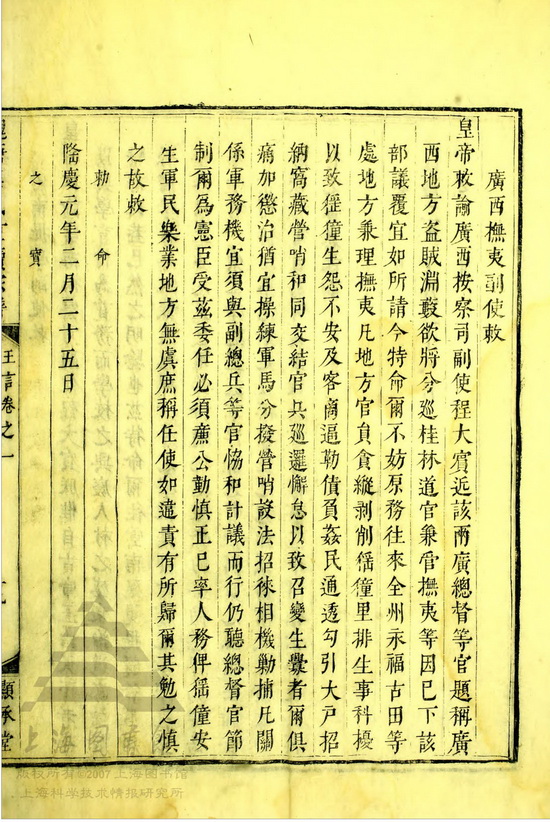 廣西撫夷副使敕
皇帝敕諭廣西按察司副使程大賓近該兩廣總督等官題稱廣
西地方盜賊淵藪欲將分巡桂林道官兼管撫夷等因巳下該
部議覆宜如所請今特命爾不妨原務往來全州永福古田等
處地方兼理撫夷凡地方官員貪縱剥削徭僮里排生事科擾
以致徭僮生怨不安及客商逼勒債負姦民通透勾引大戸招
納窩藏營哨和同交結官兵廵邏懈怠以致召變生釁者爾俱
痛加懲治猶宜操練軍馬分撥營哨設法招徠相機勦捕凡關
係軍務機宜須與副總兵等官恊和計議而行仍聽總督官節
制爾為憲臣受兹委任必須亷公勤慎正巳率人務俾徭僮安
生軍民樂業地方無虞庶稱任使如違責有所歸爾其勉之慎
之故敕
敕命
隆慶元年二月二十五日
之寶
王言卷之一
顯承堂
上海图书馆
版权所有©2007上海图书馆
上海科学技术情报研究所